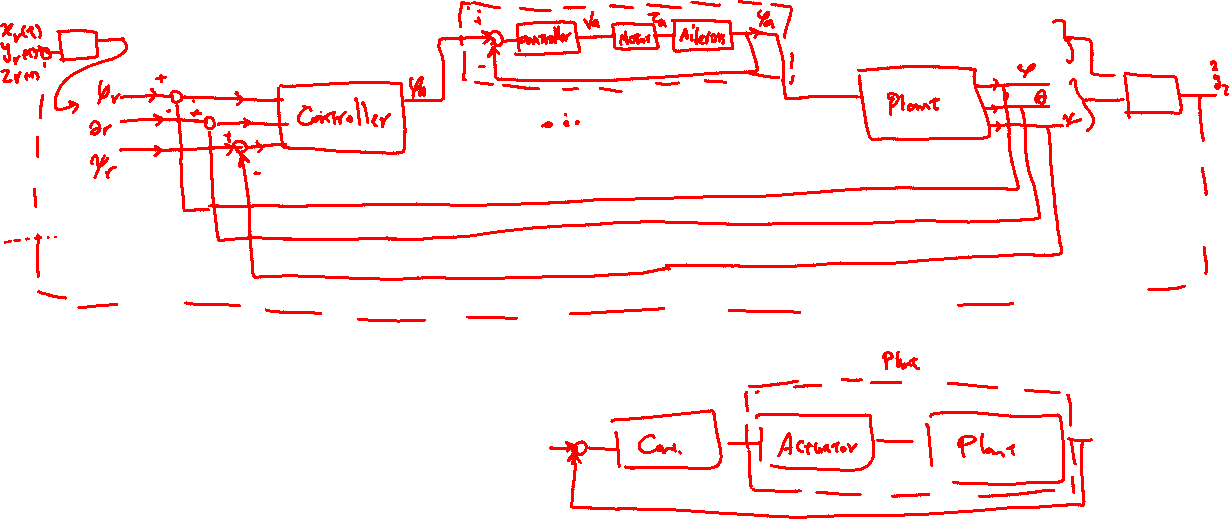 xᵣ(t)
yᵣ(t)
zᵣ(t)
φᵣ
θᵣ
ψᵣ
+
-
+
+
-
Controller
φa
i
-
Controller
Va
Motor
τa
Ailerons
φa
Plant
φ
θ
Plant
Con.
Actuator
Plant